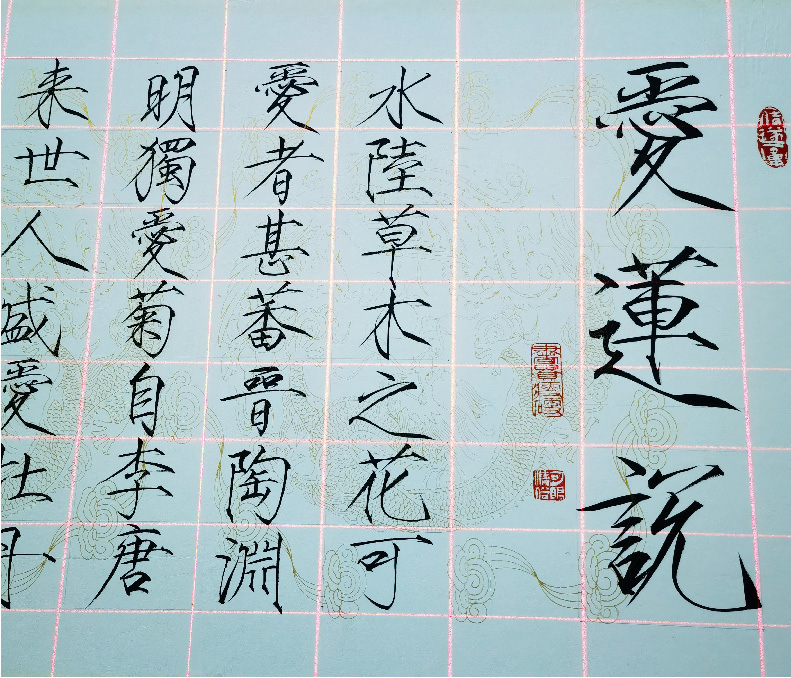 愛蓮說
水陸草木之花可
愛者甚蕃晉陶淵
明獨愛菊自李唐
来世人盛愛牡丹